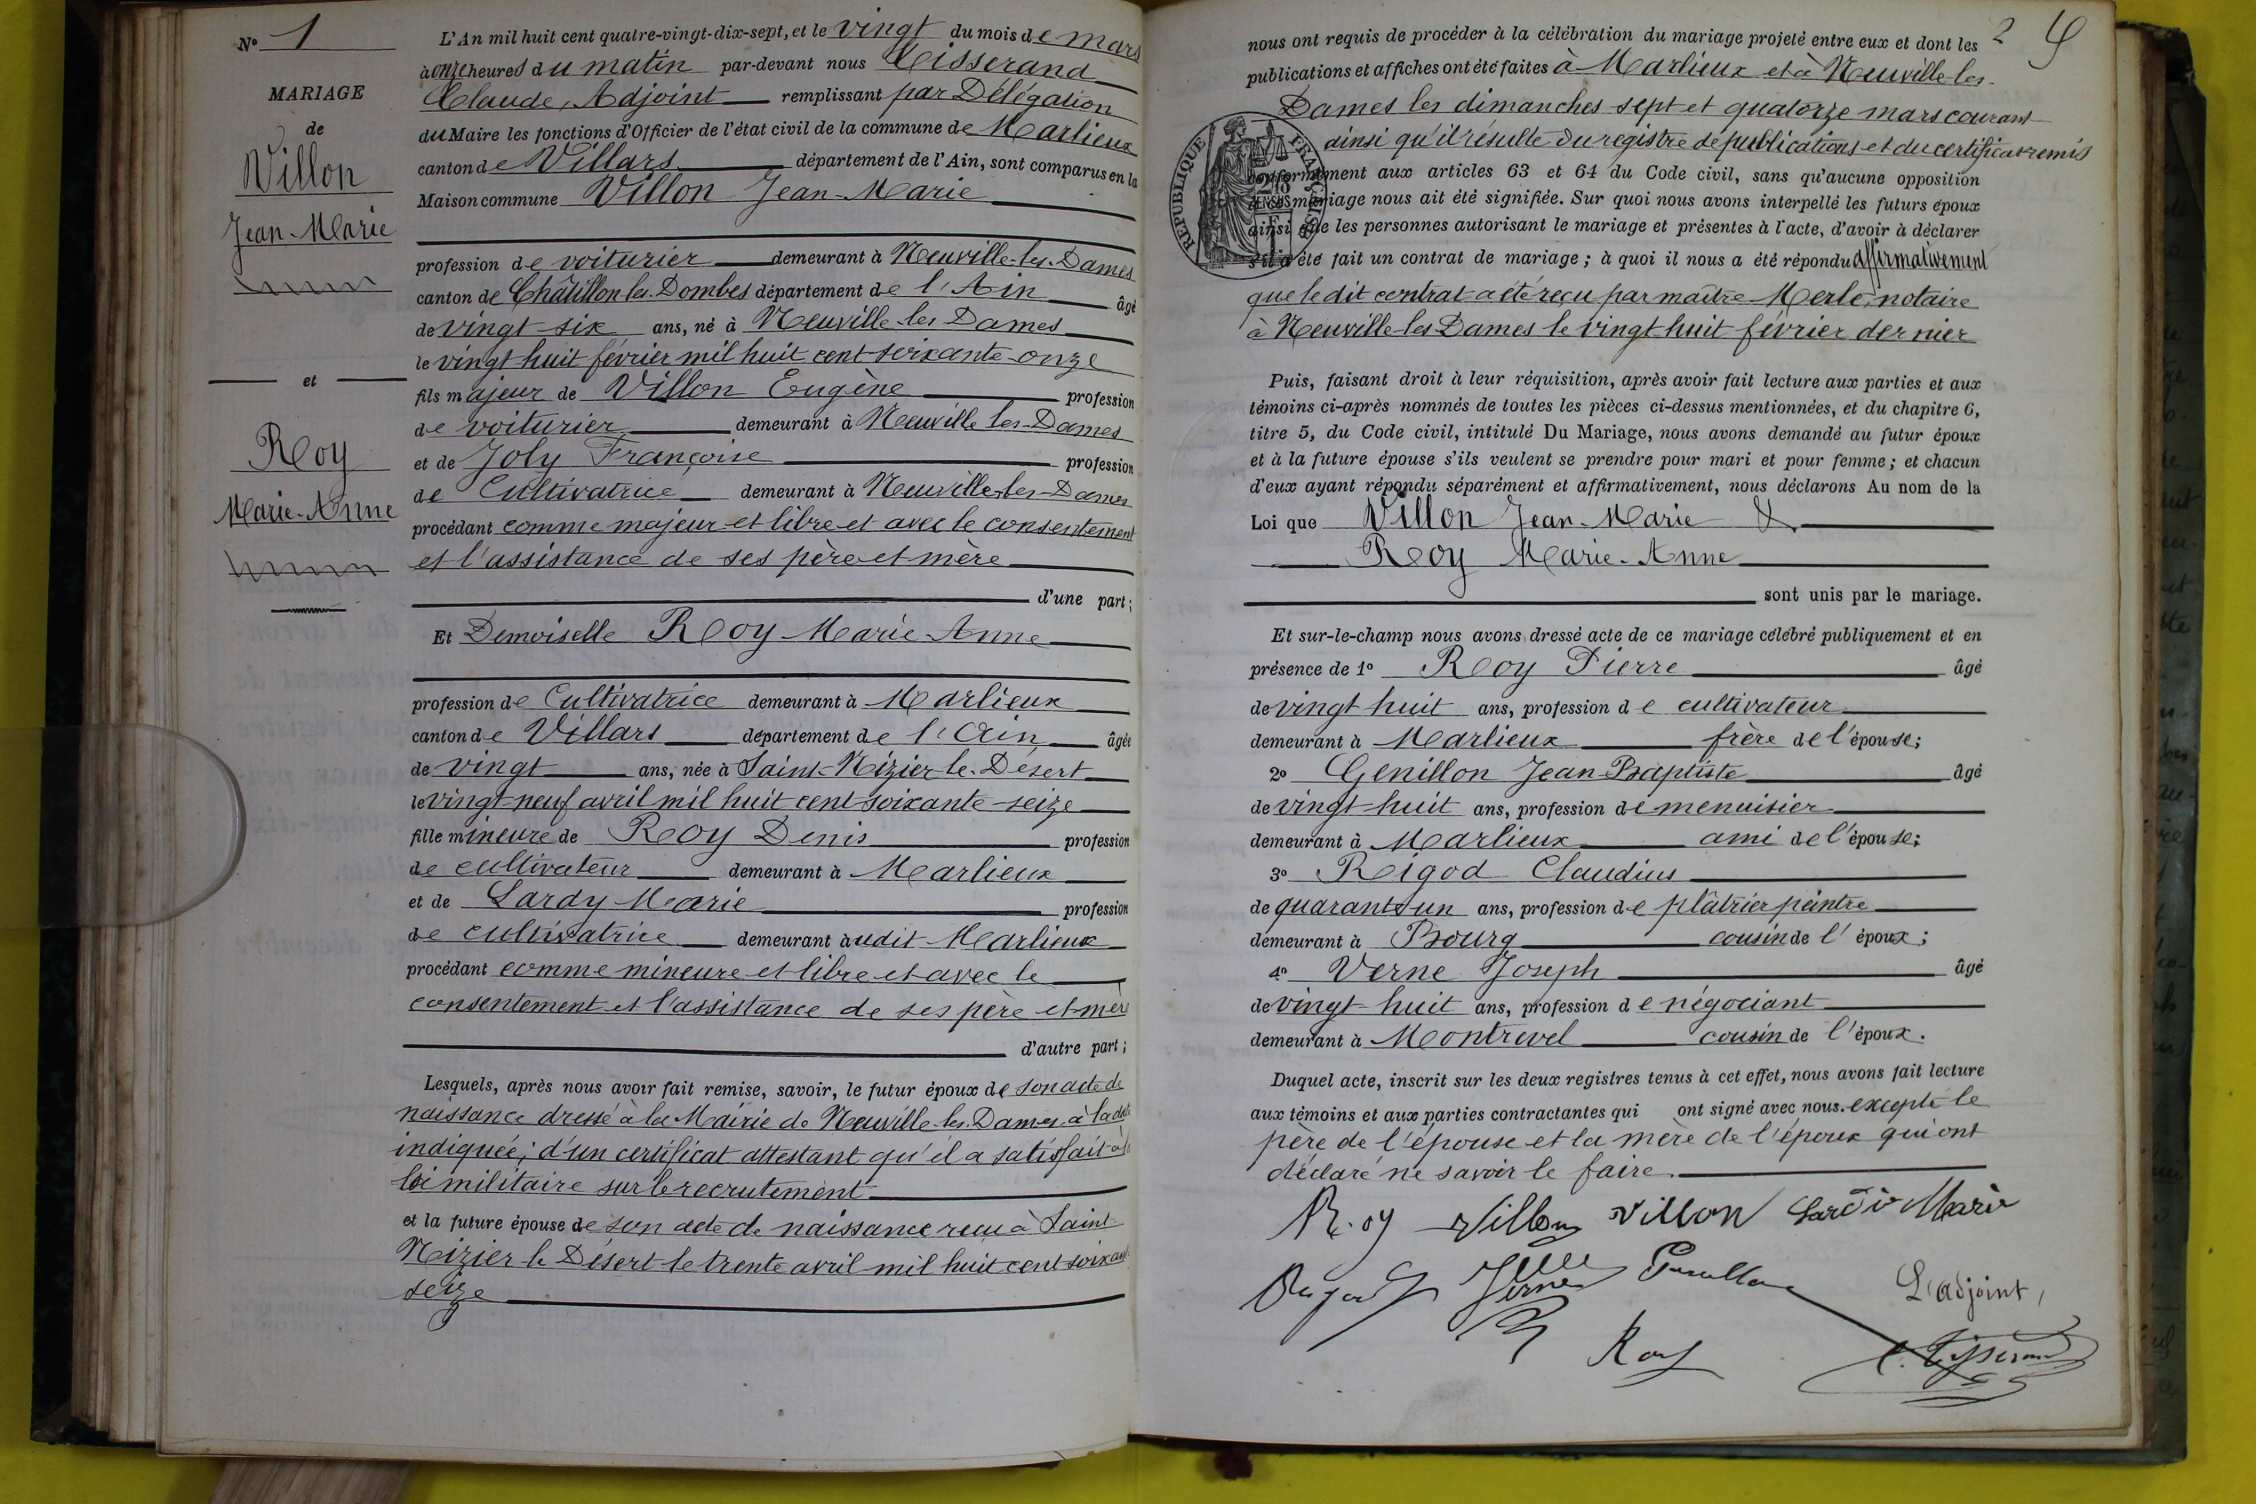 No 1
MARIAGE
de
Villon
Jean-Marie
et
Roy
Marie-Anne
L'An mil huit cent quatre-vingt-dix-sept, et le vingt du mois de mars
à onze heures du matin par-devant nous Tisserand
Claude, Adjoint remplissant par Délégation
du Maire les fonctions d'Officier de l'état civil de la commune de Marlieux
canton de Villars département de l'Ain, sont comparus en la
Maison commune Villon Jean-Marie
profession de voiturier demeurant à Neuville-les-Dames
canton de Châtillon les-Dombes département de l'Ain âgé
de vingt-six ans, né à Neuville les Dames
le vingt huit février mil huit cent soixante-onze
fils majeur de Villon Eugène profession
de voiturier demeurant à Neuville les-Dames
et de Joly Françoise profession
de Cultivatrice demeurant à Neuville-les-Dames
procédant comme majeur et libre et avec le consentement
et l'assistance de ses père et mère
d'une part;
Et Demoiselle Roy Marie-Anne
profession de Cultivatrice demeurant à Marlieux
canton de Villars département de l'Ain âgée
de vingt ans, née à Saint-Nizier-le-Désert
le vingt-neuf avril mil huit cent soixante-seize
fille mineure de Roy Denis profession
de cultivateur demeurant à Marlieux
et de Lardy Marie profession
de cultivatrice demeurant audit Marlieux
procédant comme mineure et libre et avec le
consentement et l'assistance de ses père et mère
d'autre part;
Lesquels, après nous avoir fait remise, savoir, le futur époux de son acte de
naissance dressé à la Mairie de Neuville-les-Dames à la date
indiquée; d'un certificat attestant qu'il a satisfait à la
loi militaire sur le recrutement
et la future épouse de son acte de naissance reçu à Saint
Nizier le Désert le trente avril mil huit cent soixante
seize
2
nous ont requis de procéder à la célébration du mariage projeté entre eux et dont les
publications et affiches ont été faites à Marlieux et à Neuville-les-
Dames les dimanches sept et quatorze mars courant
ainsi qu'il résulte du registre de publications et du certificat remis
RÉPUBLIQUE FRANÇAISE
conformément aux articles 63 et 64 du Code civil, sans qu'aucune opposition
à ce mariage nous ait été signifiée. Sur quoi nous avons interpellé les futurs époux
ainsi que les personnes autorisant le mariage et présentes à l'acte, d'avoir à déclarer
s'il a été fait un contrat de mariage; à quoi il nous a été répondu affirmativement
que le dit contrat a été reçu par maître Merle, notaire
à Neuville-les Dames le vingt huit février dernier
Puis, faisant droit à leur réquisition, après avoir fait lecture aux parties et aux
témoins ci-après nommés de toutes les pièces ci-dessus mentionnées, et du chapitre 6,
titre 5, du Code civil, intitulé Du Mariage, nous avons demandé au futur époux
et à la future épouse s'ils veulent se prendre pour mari et pour femme; et chacun
d'eux ayant répondu séparément et affirmativement, nous déclarons Au nom de la
Loi que Villon Jean-Marie &
Roy Marie-Anne
sont unis par le mariage.
Et sur-le-champ nous avons dressé acte de ce mariage célébré publiquement et en
présence de 1o Roy Pierre âgé
de vingt huit ans, profession de cultivateur
demeurant à Marlieux frère de l'épouse;
2o Genillon Jean-Baptiste âgé
de vingt-huit ans, profession de menuisier
demeurant à Marlieux ami de l'épouse;
3o Reigod Claudius
de quarante un ans, profession de plâtrier peintre
demeurant à Bourg cousin de l'époux;
4o Verne Joseph âgé
de vingt-huit ans, profession de négociant
demeurant à Montrevel cousin de l'époux.
Duquel acte, inscrit sur les deux registres tenus à cet effet, nous avons fait lecture
aux témoins et aux parties contractantes qui ont signé avec nous. excepté le
père de l'épouse et la mère de l'époux qui ont
déclaré ne savoir le faire.
Roy Villon Villon Lardy Marie
Verne
L'adjoint,
Roy C. Tisserand